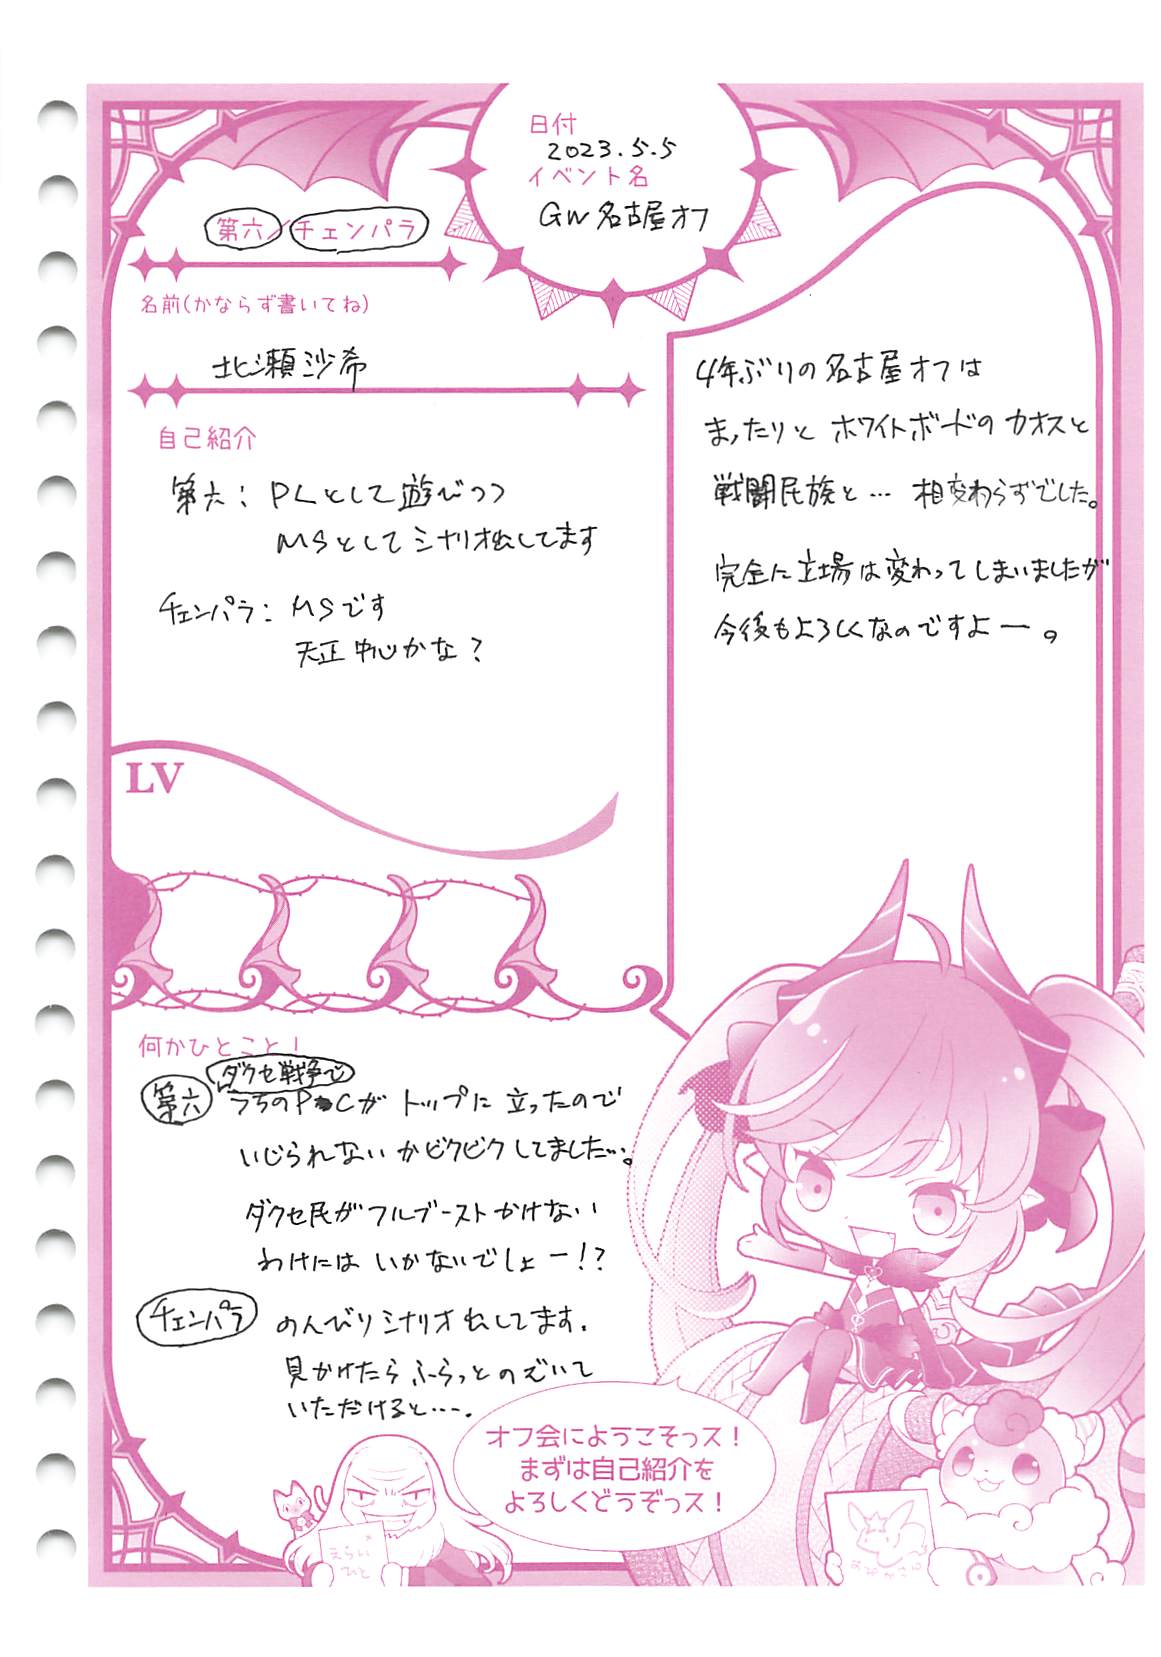 日付
2023.5.5
イベント名
GW名古屋オフ
第六／チェンパラ
名前(かならず書いてね)
北瀬沙希
自己紹介
第六：PLとして遊びつつ
MSとしてシナリオ出してます
チェンパラ：MSです
天正中心かな？
LV
4年ぶりの名古屋オフは
まったりとホワイトボードのカオスと
戦闘民族と…相変わらずでした。
完全に立場は変わってしまいましたが
今後もよろしくなのですよー。
何かひとこと！
ダクセ戦争で
第六 うちのPCがトップに立ったので
いじられないかビクビクしてました…。
ダクセ民がフルブーストかけない
わけにはいかないでしょー!?
チェンパラ のんびりシナリオ出してます。
見かけたらふらっとのぞいて
いただけると…。
オフ会にようこそっス！
まずは自己紹介を
よろしくどうぞっス！
えらい
ひと